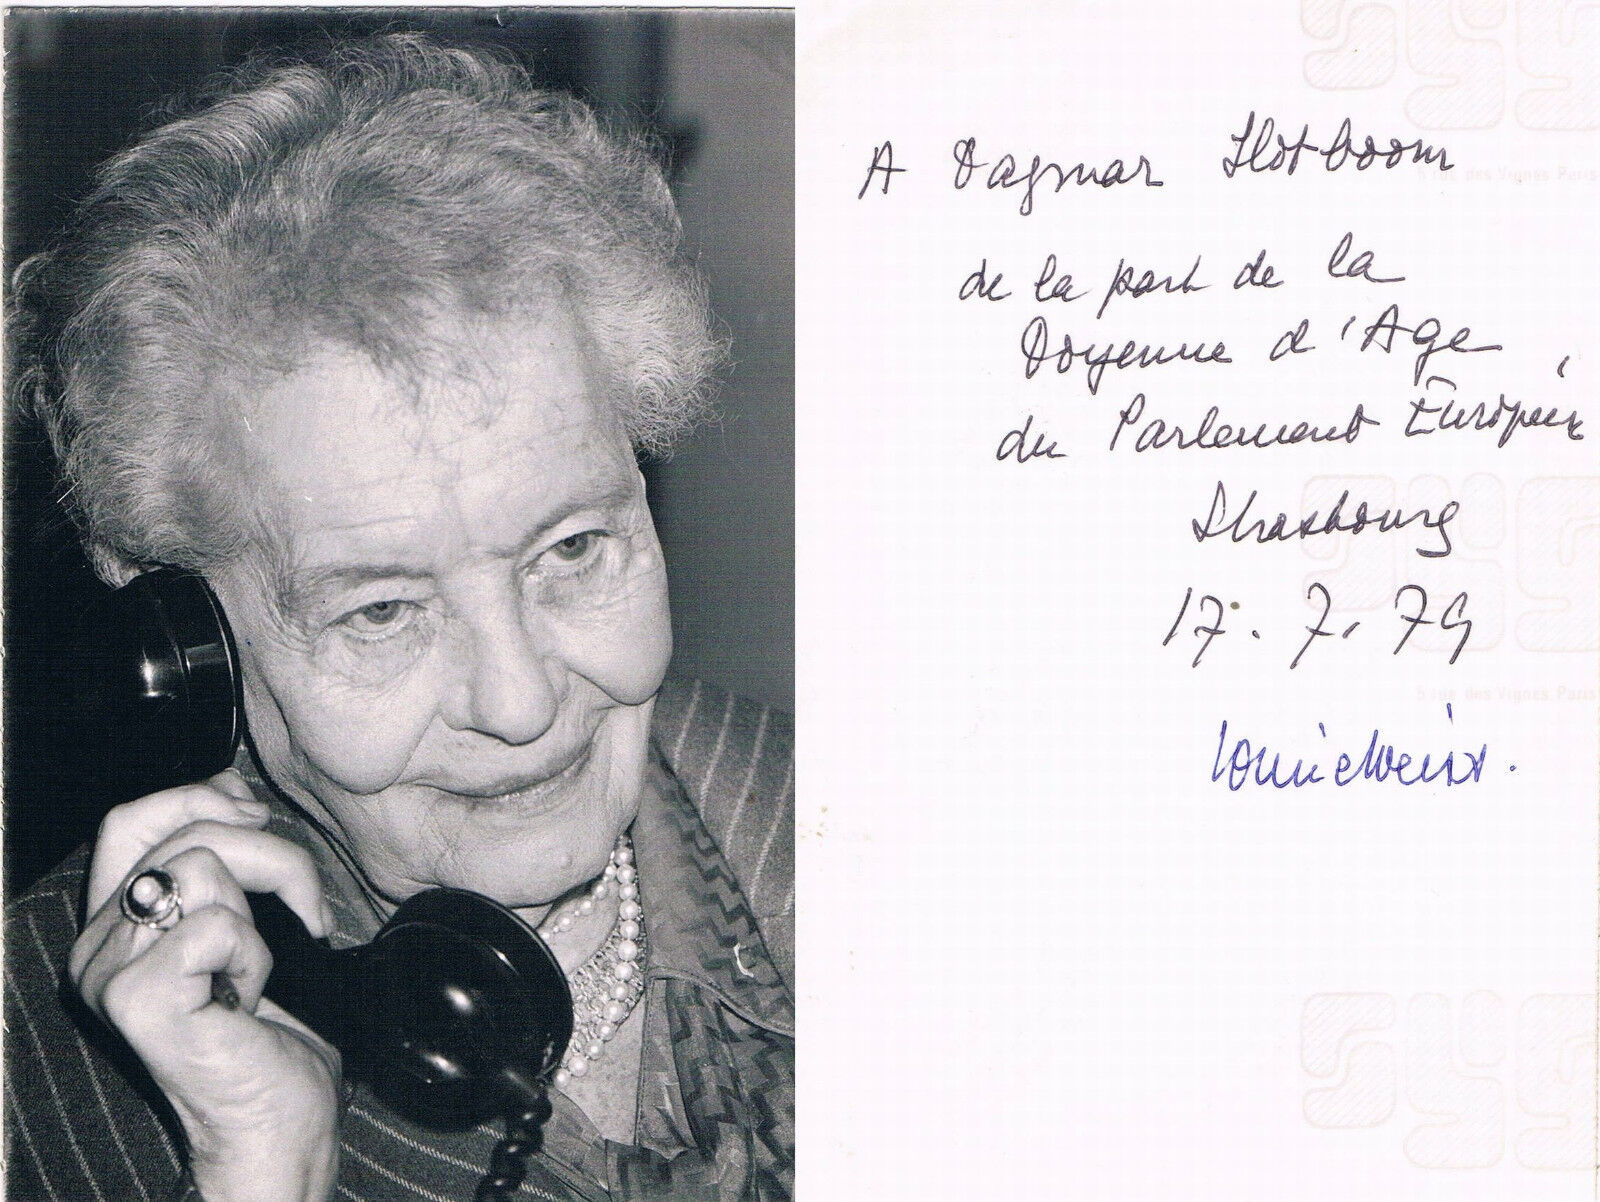 A Dagmar Slotboom
5 rue des Vignes. Paris
de la part de la
Doyenne d'Age
du Parlement Européen
Strasbourg
17. 7. 79
5 rue des Vignes. Paris
Louise Weiss.